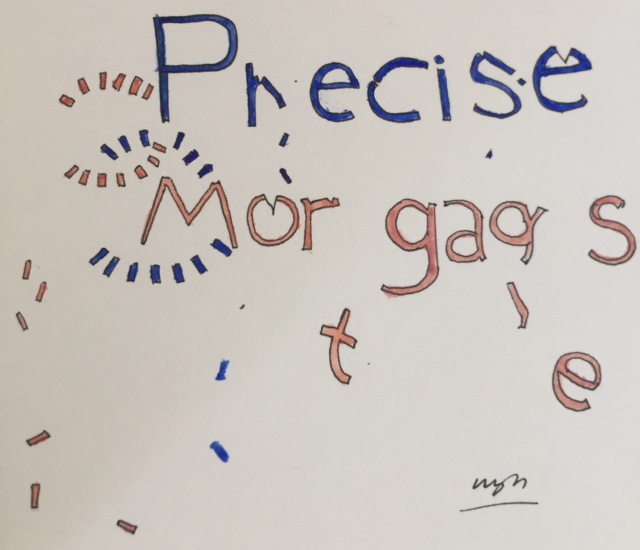 Precise
Mor gag s
t e